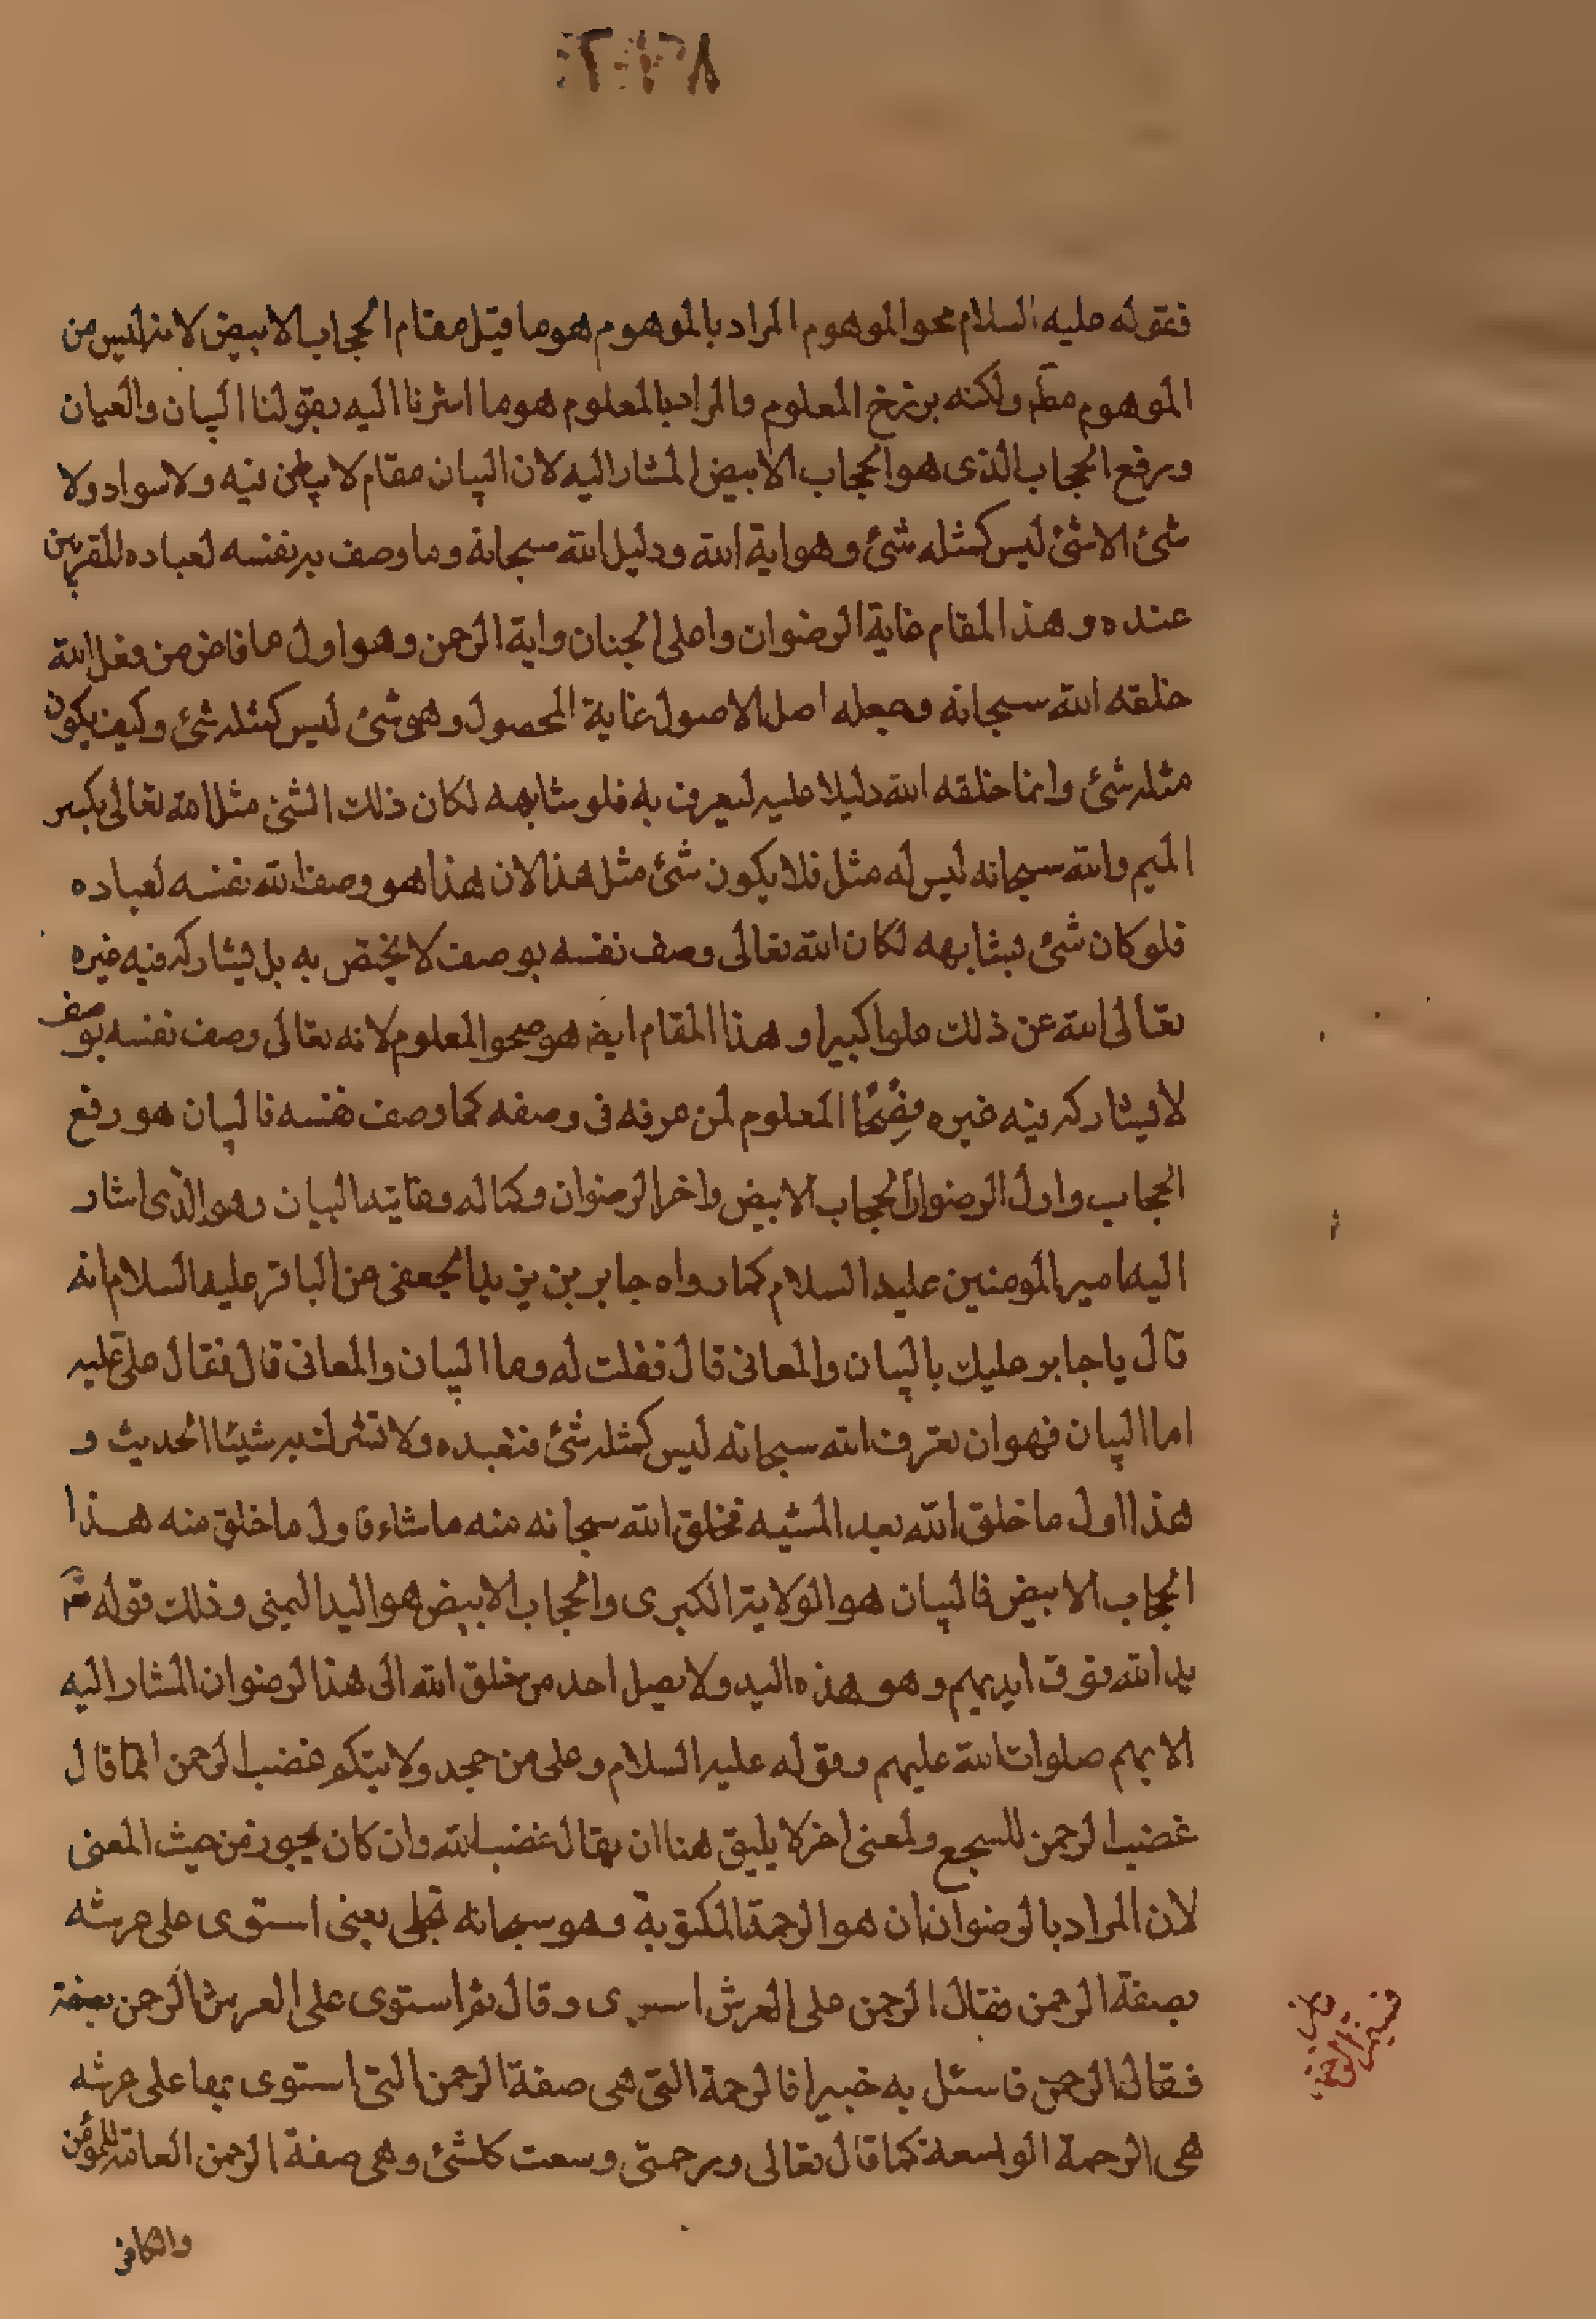 فقوله عليه السلام محو الموهوم المراد بالموهوم هو ما قبل مقام الحجاب الابيض لانه ليس من
الموهوم مطم ولكنه برزخ المعلوم والمراد بالمعلوم هو ما اشرنا اليه بقولنا البيان والعيان
ورفع الحجاب الذى هو الحجاب الابيض المشار اليه لان البيان مقام لا بياض فيه ولا سواد ولا
شئ الا شئ ليس كمثله شئ وهو اية الله ودليل الله سبحانه وما وصف به نفسه لعباده المقربين
عنده وهذا المقام غاية الرضوان واعلى الجنان واية الرحمن وهو اول ما فاض من فعل الله
خلقه الله سبحانه وجعله اصل الاصول غاية المحصول وهو شئ ليس كمثله شئ وكيف يكون
مثله شئ وانما خلقه الله دليلا عليه ليعرف به فلو شابهه لكان ذلك الشئ مثل الله تعالى بكسر
الميم والله سبحانه ليس له مثل فلا يكون شئ مثل هذا لان هذا هو وصف الله نفسه لعباده
فلو كان شئ يشابهه لكان الله تعالى وصف نفسه بوصف لا يختص به بل يشاركه فيه غيره
تعالى الله عن ذلك علوا كبيرا وهذا المقام ايضا هو صحو المعلوم لانه تعالى وصف نفسه بوصف
لا يشاركه فيه غيره المعلوم لمن عرفه فى وصفه كما وصف نفسه فالبيان هو رفع
الحجاب واول الرضوان الحجاب الابيض واخر الرضوان وكماله وغايته البيان وهو الذى اشار
اليه امير المومنين عليه السلام كما رواه جابر بن يزيد الجعفى عن الباقر عليه السلام انه
قال يا جابر عليك بالبيان والمعانى قال فقلت له وما البيان والمعانى قال فقال على عليه
اما البيان فهو ان تعرف الله سبحانه ليس كمثله شئ فتعبده ولا تشرك به شيئا الحديث و
هذا اول ما خلق الله بعد المشيه فخلق الله سبحانه منه ما شاء فاول ما خلق منه هذا
الحجاب الابيض فالبيان هو الولاية الكبرى والحجاب الابيض هو اليد اليمنى وذلك قوله تع
يد الله فوق ايديهم وهو هذه اليد ولا يصل احد من خلق الله الى هذا الرضوان المشار اليه
الا بهم صلوات الله عليهم وقوله عليه السلام وعلى من جحد ولايتكم غضب الرحمن انما قال
غضب الرحمن للسجع ولمعنى اخر لا يليق هنا ان يقال غضب الله وان كان يجوز من حيث المعنى
لان المراد بالرضوان ان هو الرحمة المكتوبة وهو سبحانه تجلى يعنى استوى على عرشه
بصفة الرحمن فقال الرحمن على العرش استوى وقال ثم استوى على العرش الرحمن بصفة
فقال الرحمن فاسئل به خبيرا فالرحمة التى هى صفة الرحمن التى استوى بها على عرشه
هى الرحمة الواسعة كما قال تعالى ورحمتى وسعت كلشئ وهى صفة الرحمن العامة للمؤمن
والكافر